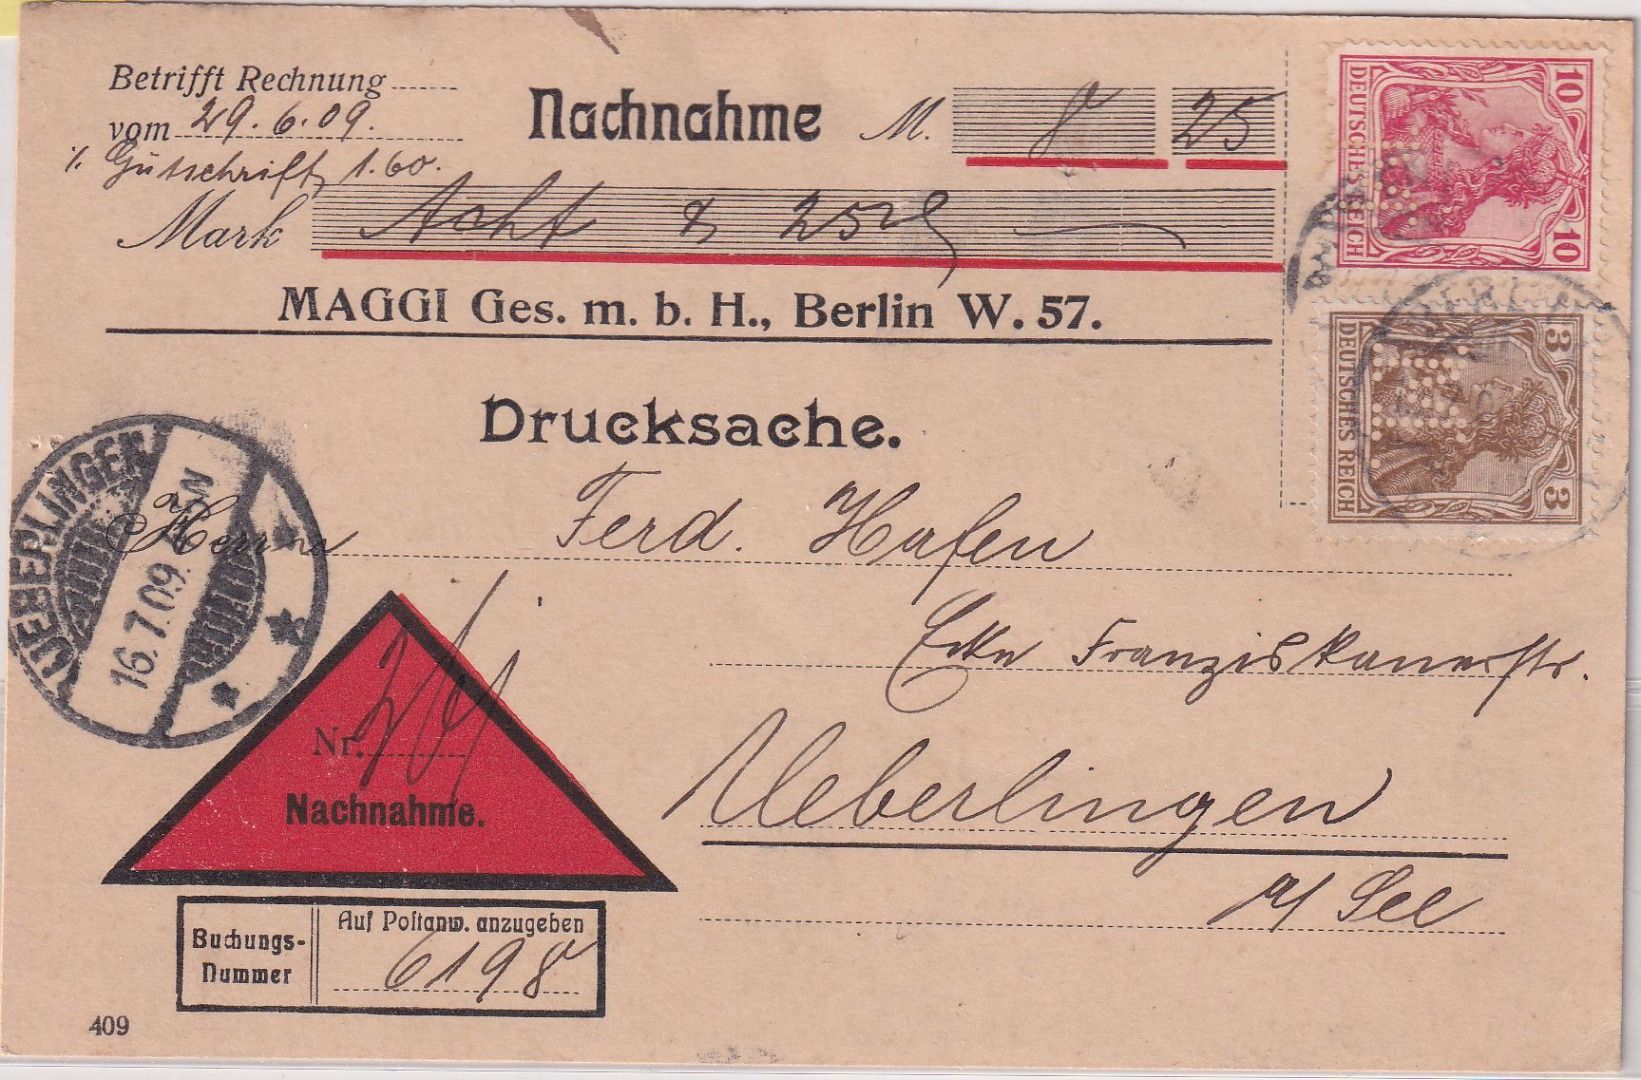 Betrifft Rechnung
vom 29.6.09.
% Gutschrift 1.60.
Nachnahme M. 8 25
Mark Acht & 25
MAGGI Ges. m. b. H., Berlin W. 57.
Drucksache.
Herrn Ferd. Hafen
Ecke Franziskanerstr.
Ueberlingen
a/ See
Nr.
Nachnahme.
Buchungs-
Nummer
Auf Postanw. anzugeben
6198
409
UEBERLINGEN
16.7.09.
10 DEUTSCHES REICH 10
3 DEUTSCHES REICH 3
BERLIN